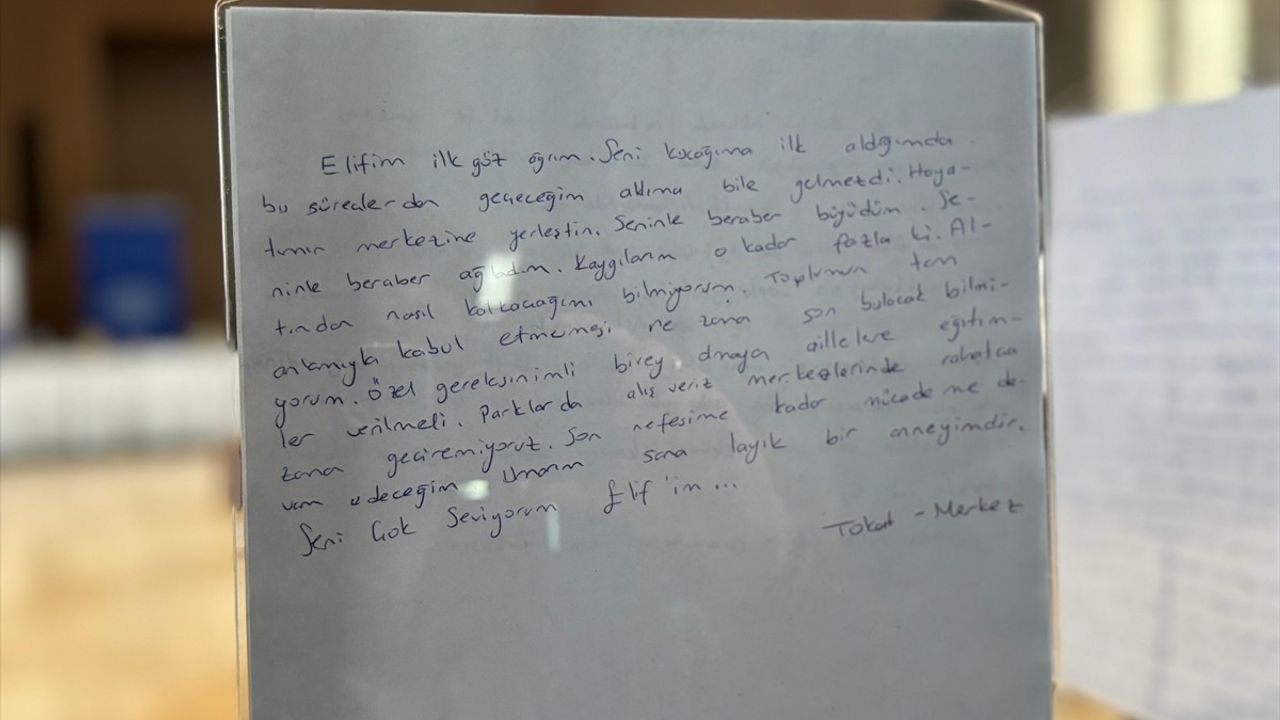 Elifim ilk göz ağrım. Seni kucağıma ilk aldığımda
bu sürecalerdan geçeceğim aklıma bile gelmezdi. Haya-
tımın merkezine yerleştin. Seninle beraber büyüdüm. Se-
ninle beraber ağladım. Kaygılarım o kadar fazla ki. Al-
tından nasıl kalkacağımı bilmiyorum. Toplumun tam
anlamıyla kabul etmemesi ne zama son bulacak bilmi-
yorum. Özel gereksinimli birey olmayan aillelere eğitim-
ler verilmeli. Parklarda alış veriz merkezlerinde rahatca
zama geciremiyoruz. Son nefesime kadar mücademe de-
vam edeceğim Umarım sana layık bir anneyimdir.
Seni Çok Seviyorum Elif'im...
Tokat - Merkez